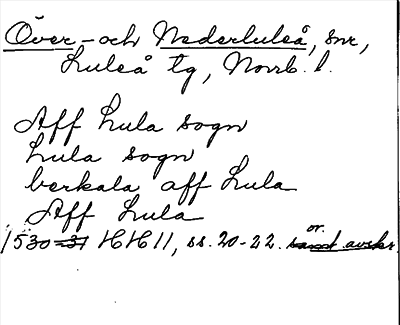 Över- och Nederluleå, snr,
Luleå tg, Norrb. l.
Aff Lula sogn
Lula sogn
berkala aff Lula
Aff Lula
1530-31 HH 11, ss. 20-22. or. samt avskr.